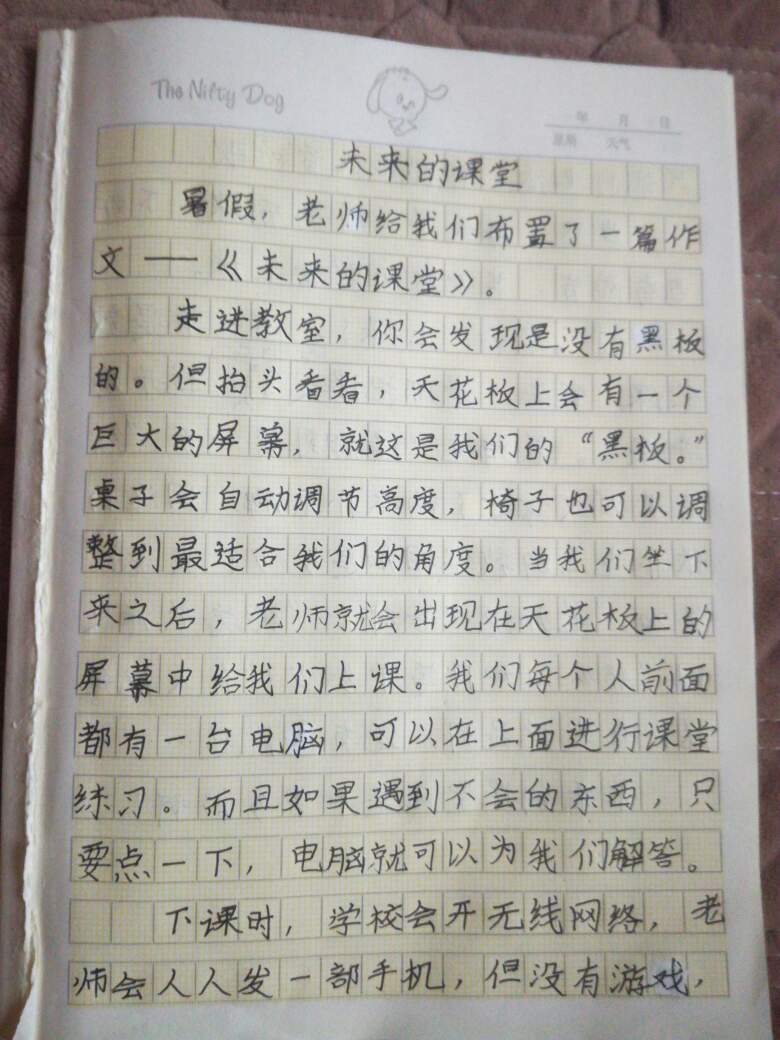 The Nifty Dog
年 月 日
星期 天气
未来的课堂
暑假，老师给我们布置了一篇作
文——《未来的课堂》。
走进教室，你会发现是没有黑板
的。但抬头看看，天花板上会有一个
巨大的屏幕，就这是我们的“黑板。”
桌子会自动调节高度，椅子也可以调
整到最适合我们的角度。当我们坐下
来之后，老师就会出现在天花板上的
屏幕中给我们上课。我们每个人前面
都有一台电脑，可以在上面进行课堂
练习。而且如果遇到不会的东西，只
要点一下，电脑就可以为我们解答。
下课时，学校会开无线网络，老
师会人人发一部手机，但没有游戏，